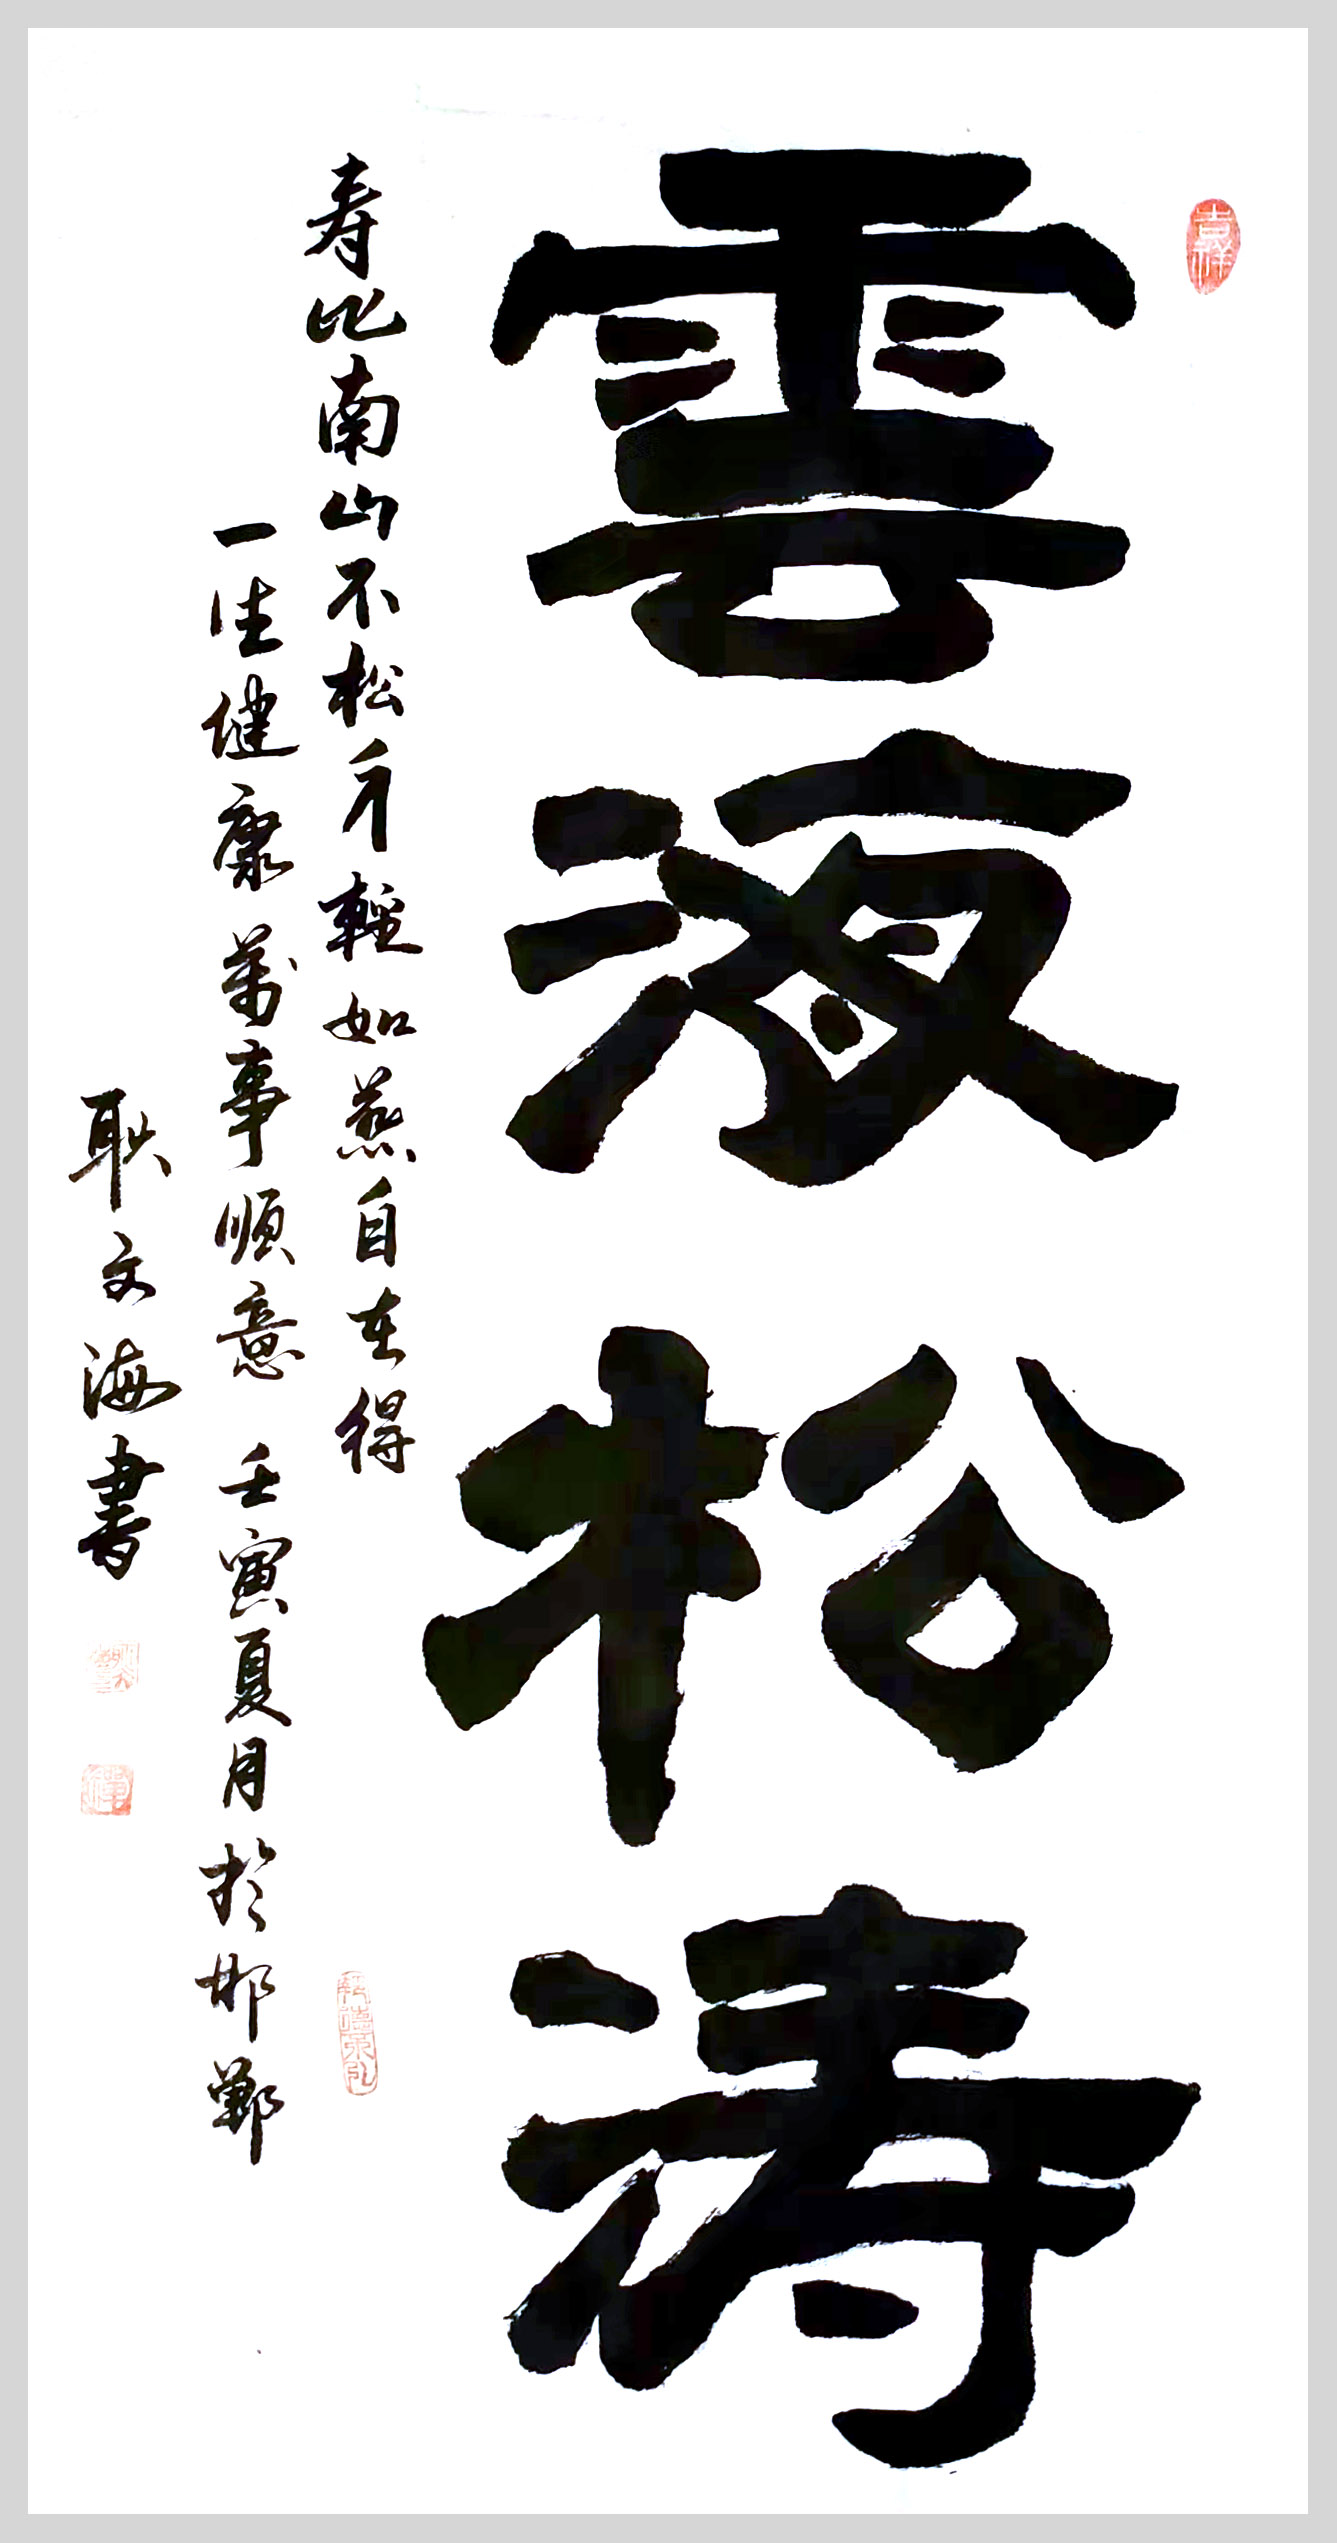 吉祥
雲海松涛
寿比南山不松身輕如燕自在得
一生健康萬事順意 壬寅夏月於邯鄲
耿文海書